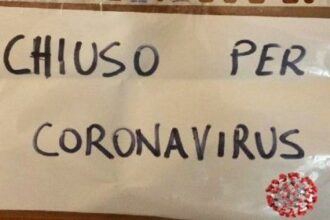 CHIUSO PER
CORONAVIRUS